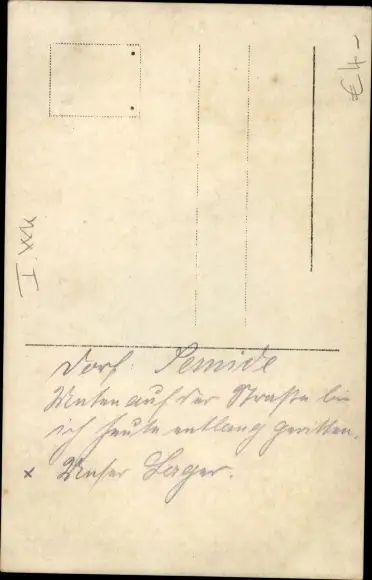 € 4 –
Dorf: Semide
Unten auf der Straße bin
ich heute entlang geritten.
x Unser Lager.